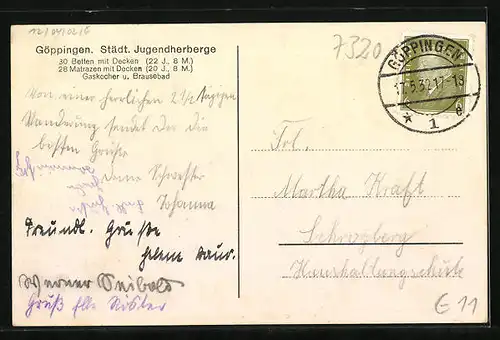 12/04/02/6
Göppingen. Städt. Jugendherberge
30 Betten mit Decken (22 J., 8 M.)
28 Matrazen mit Decken (20 J., 8 M.)
Gaskocher u. Brausebad
7320
GÖPPINGEN
17.5.32.17-18
* 1 e
Von einer herrlichen 2 1/2 tägigen
Wanderung sendet Dir die
besten Grüße
Deine Schwester
Johanna
Freundl. Grüße
Helene
Werner Seibold
Gruß
Frl.
Martha Kraft
Haushaltungsschule
€ 11